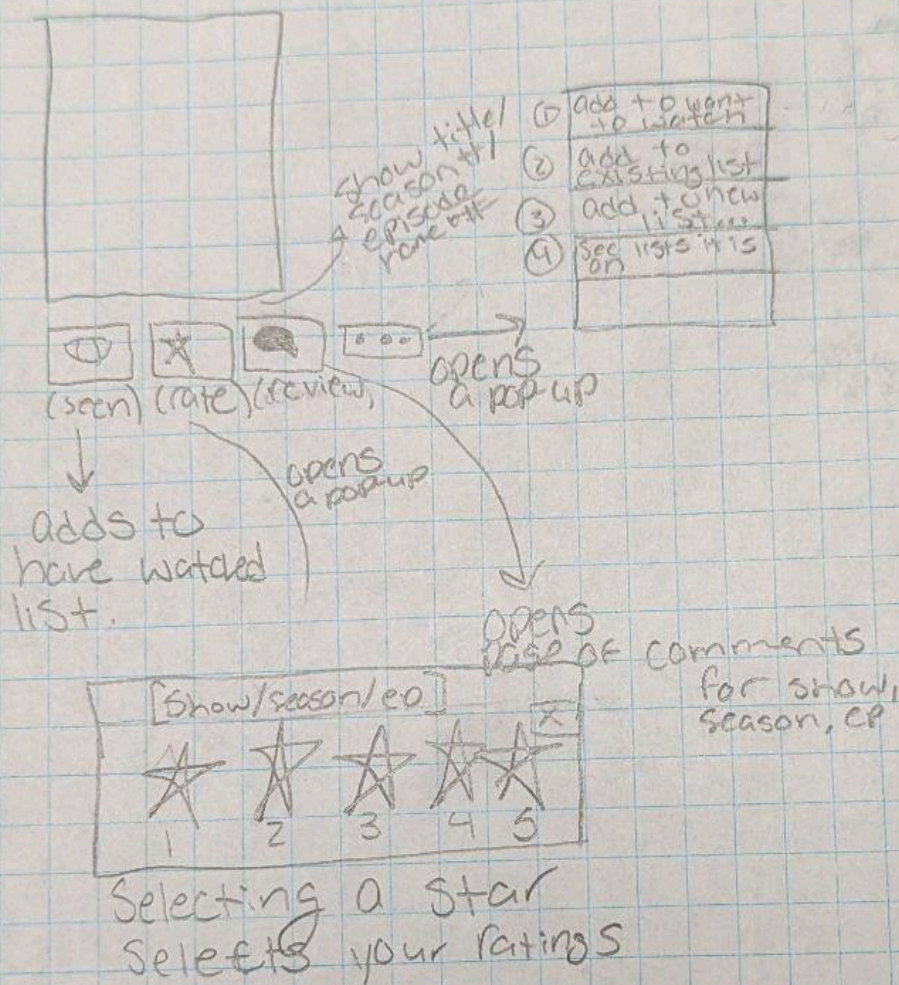 show title/
season #/
episode
name/#
① add to want
to watch
② add to
existing list
③ add to new
list...
④ see lists it is
on
(seen) (rate) (review)
opens
a pop-up
opens
a pop-up
adds to
have watched
list.
opens
page of comments
for show,
season, ep
[Show/season/ep]
X
1 2 3 4 5
Selecting a star
Selects your ratings